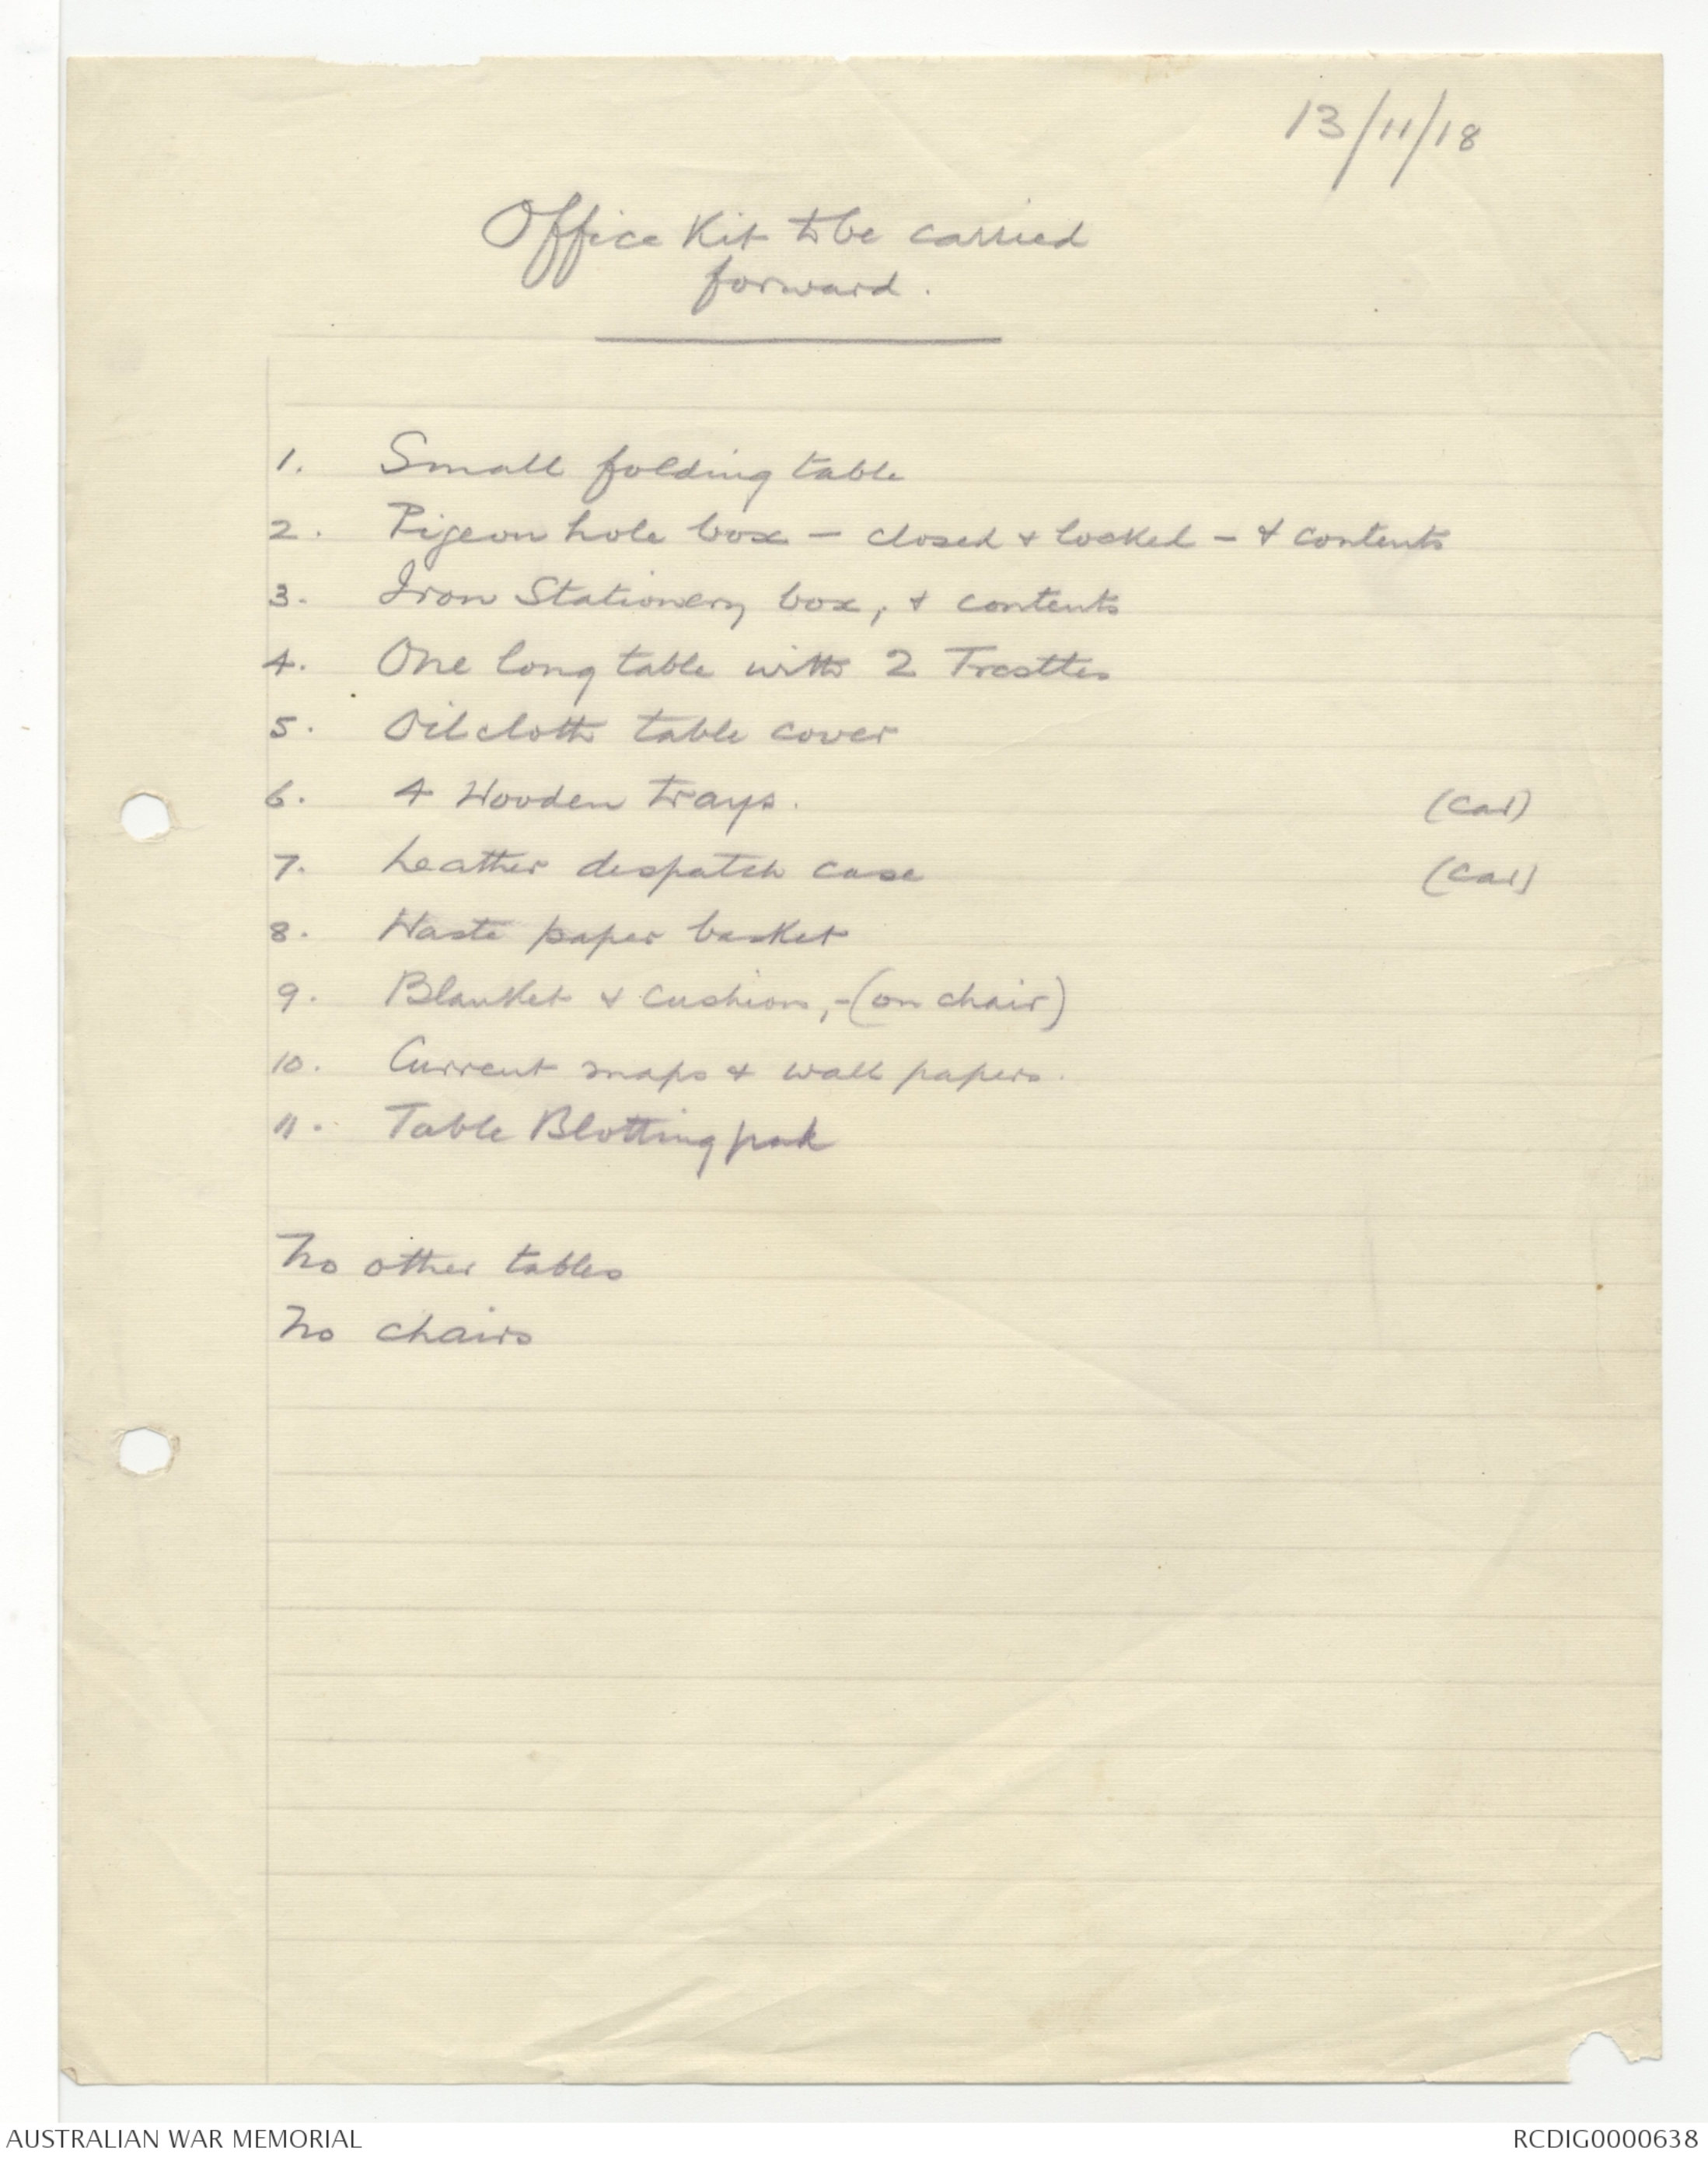 13/11/18
Office Kit to be carried
forward.
1. Small folding table
2. Pigeon hole box - closed & locked - & contents
3. Iron Stationery box, & contents
4. One long table with 2 Trestles
5. Oilcloth table cover
6. 4 Wooden trays. (Car)
7. Leather despatch case (Car)
8. Waste paper basket
9. Blanket & Cushion, - (on chair)
10. Current maps & wall papers.
11. Table Blotting pad
No other tables
No chairs
AUSTRALIAN WAR MEMORIAL
RCDIG0000638